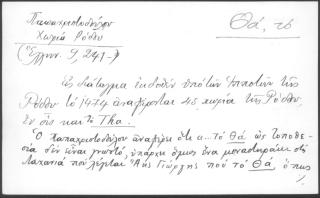 Παπαχριστοδούλου
Χωριά Ρόδου
Θά, τό
(Ἑλλην. 9, 241-)
Εἰς διάταγμα ἐκδοθέν ὑπό τῶν Ἱπποτῶν τῆς
Ρόδου τό 1474 ἀναφέρονται 45 χωρία τῆς Ρόδου,
ἐν οἷς και το Tha.
Ὁ Παπαχριστοδούλου ἀναφέρει ὅτι «...τό Θά ὡς τοποθε-
σία δεν εἶναι γνωστό, ὑπάρχει ὅμως ἕνα μοναστηράκι στή
Λαχανιά που λέγεται Ἁης Γιώργης που τό Θά, ὅπως